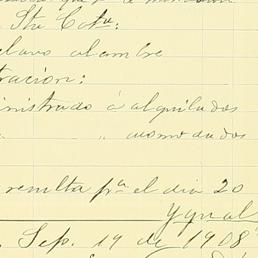 Sta Cota:
clavo alambre
tración:
ministrado á alquilados
" acomodados
resulta pra el dia 20
Ygual
Sep. 19 de 1908